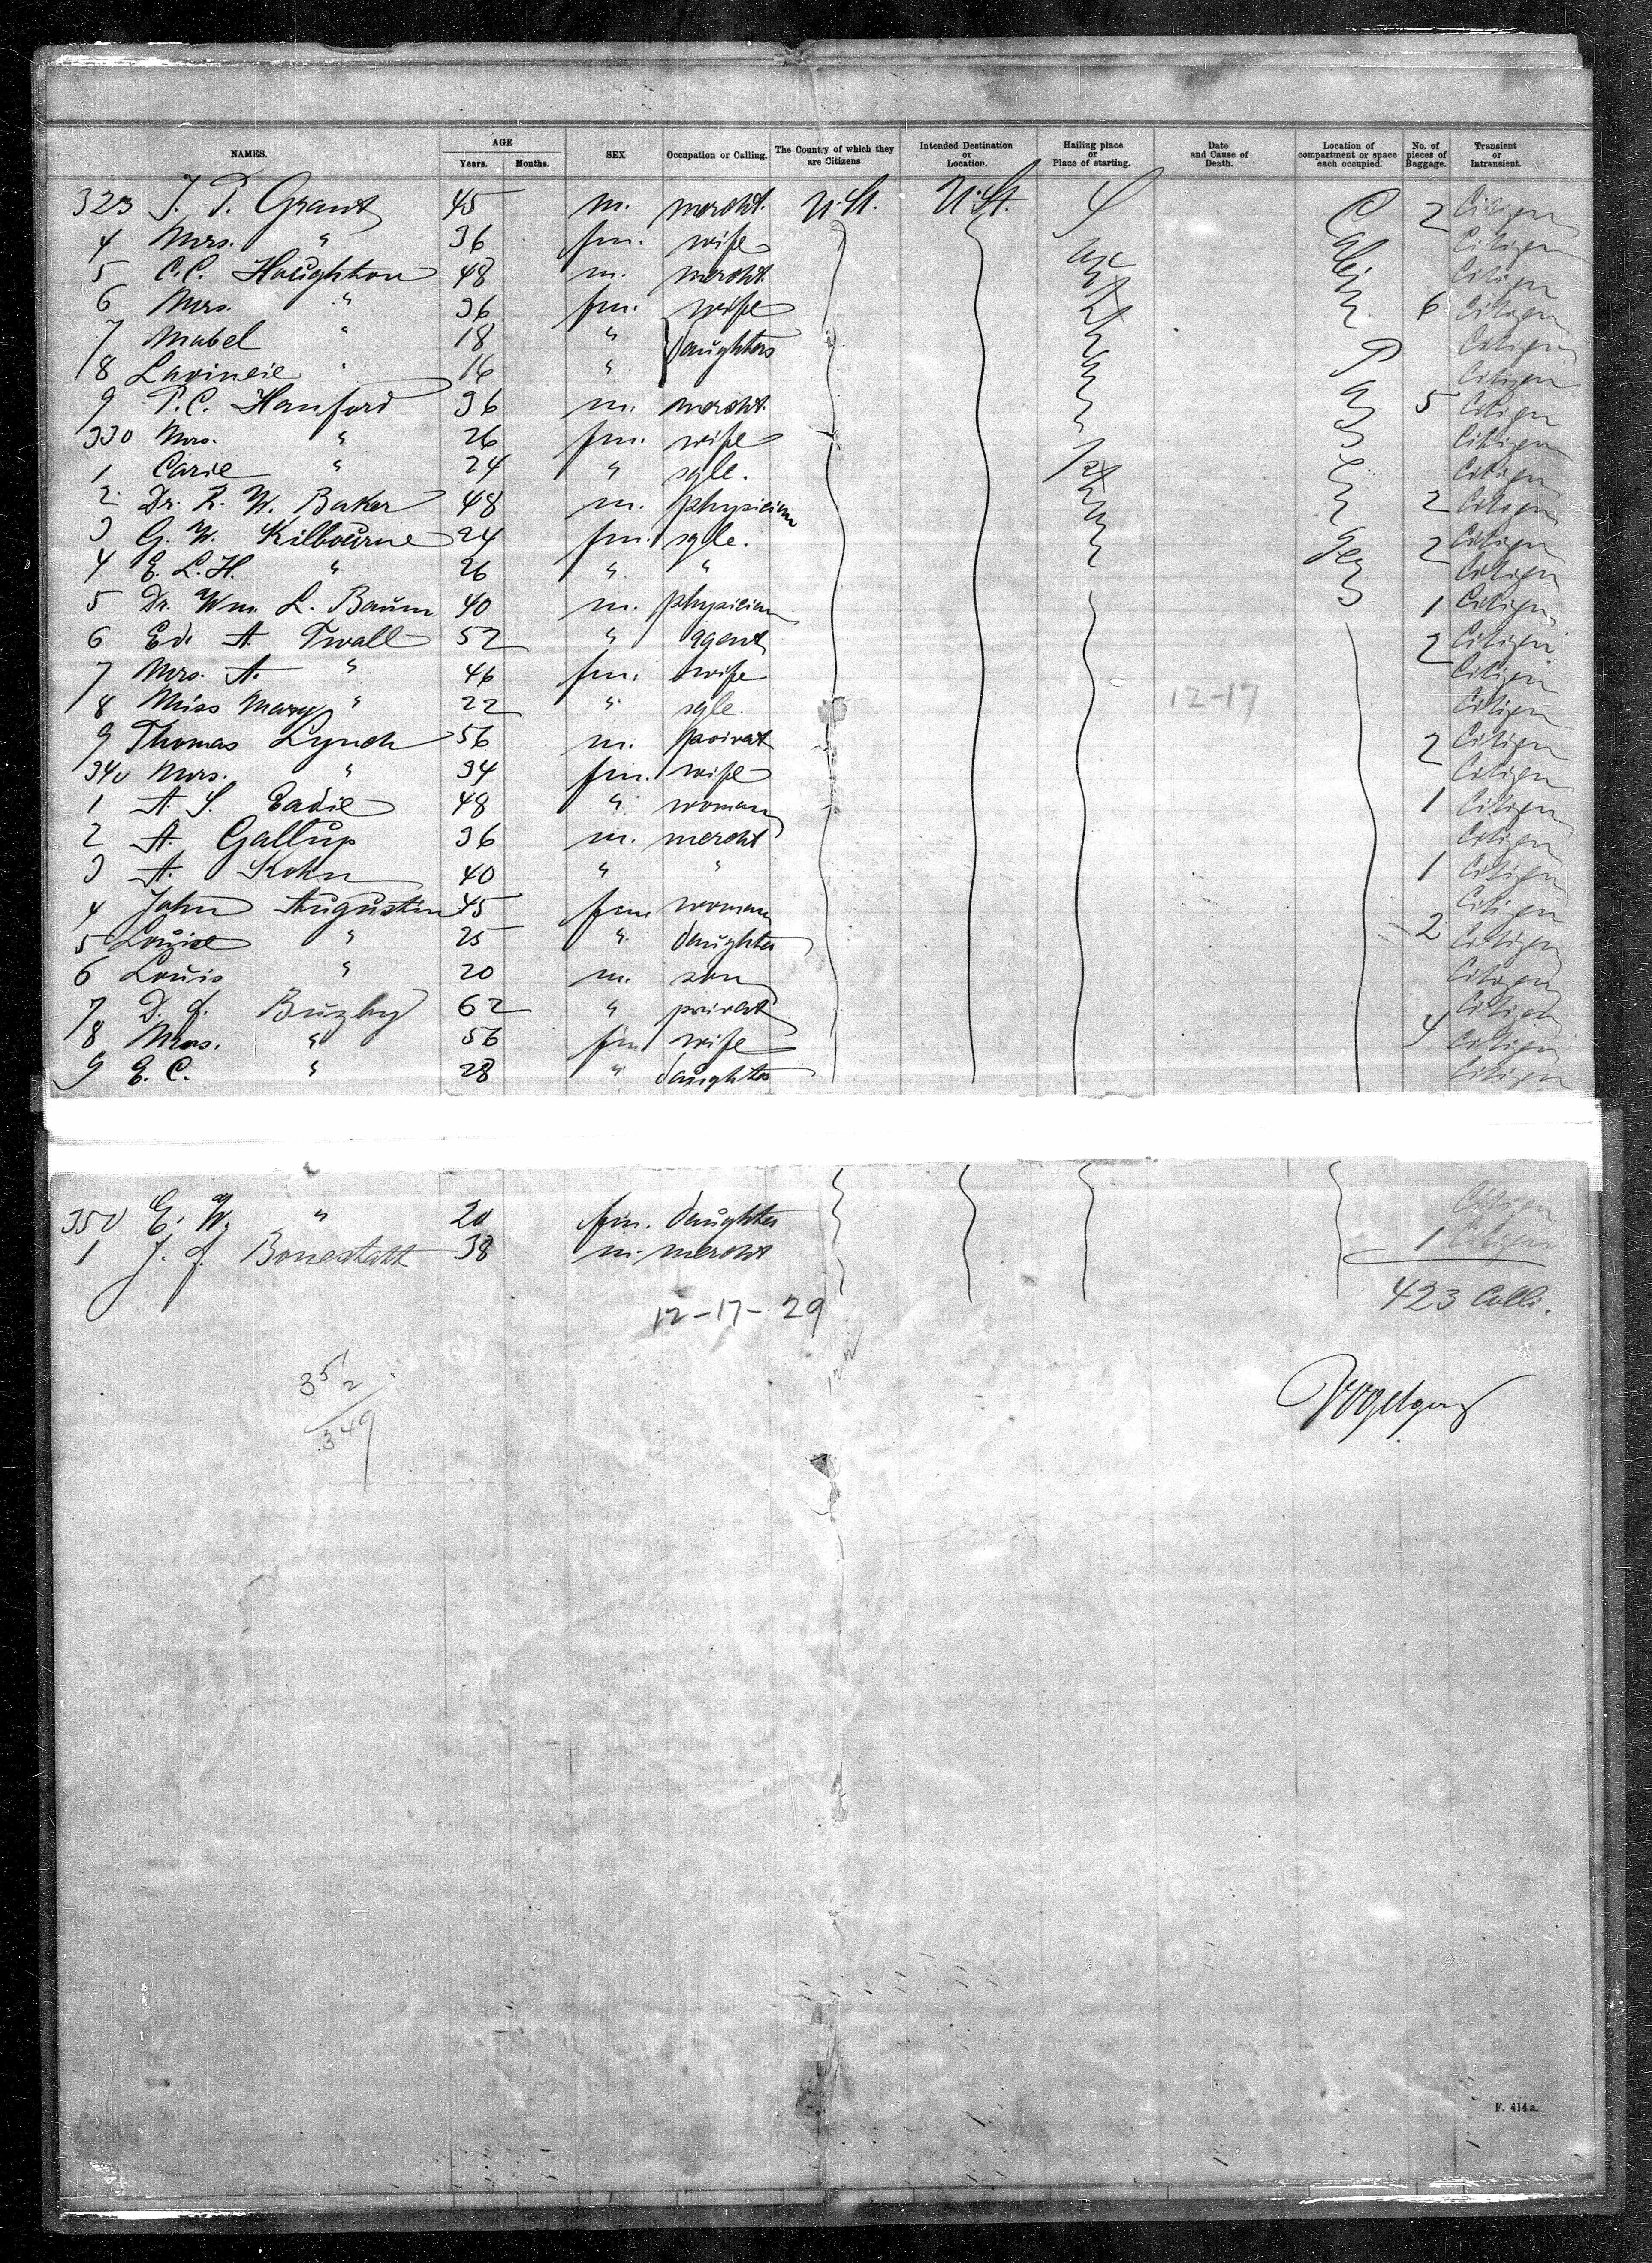 NAMES. AGE Years. Months. SEX Occupation or Calling. The Country of which they are Citizens Intended Destination or Location. Hailing place or Place of starting. Date and Cause of Death. Location of compartment or space each occupied. No. of pieces of Baggage. Transient or Intransient.
323 J. P. Grant 45 m. mercht. U. St. U. St. 2 Citizen
4 Mrs. " 36 fm. wife Citizen
5 C. C. Haughton 48 m. mercht. Citizen
6 Mrs. " 36 fm. wife 6 Citizen
7 Mabel " 18 " daughters Citizen
8 Lavineie " 16 " Citizen
9 P. C. Hanford 36 m. mercht. 5 Citizen
330 Mrs. " 26 fm. wife Citizen
1 Carie " 24 " sgle. Citizen
2 Dr. R. W. Baker 48 m. physician 2 Citizen
3 G. W. Kilbourne 24 fm. sgle. 2 Citizen
4 E. L. H. " 26 " " Citizen
5 Dr. Wm. L. Baum 40 m. physician 1 Citizen
6 Ed. A. Twall 52 " agent 2 Citizen
7 Mrs. A. " 46 fm. wife Citizen
8 Miss Mary " 22 " sgle. 12-17 Citizen
9 Thomas Lynch 56 m. privat 2 Citizen
340 Mrs. " 34 fm. wife Citizen
1 A. S. Eadie 48 " woman 1 Citizen
2 A. Gallup 36 m. mercht Citizen
3 A. Kohn 40 " " 1 Citizen
4 John Augustin 45 fm woman Citizen
5 Louise " 25 " daughter 2 Citizen
6 Louis " 20 m. son Citizen
7 D. J. Buzby 62 " privat Citizen
8 Mrs. " 56 fm wife 4 Citizen
9 E. C. " 28 " daughter Citizen
350 E. W. " 20 fm. daughter Citizen
1 J. J. 38 m. mercht 1 Citizen
423 Colli.
12-17-29
351
2
349
F. 414 a.